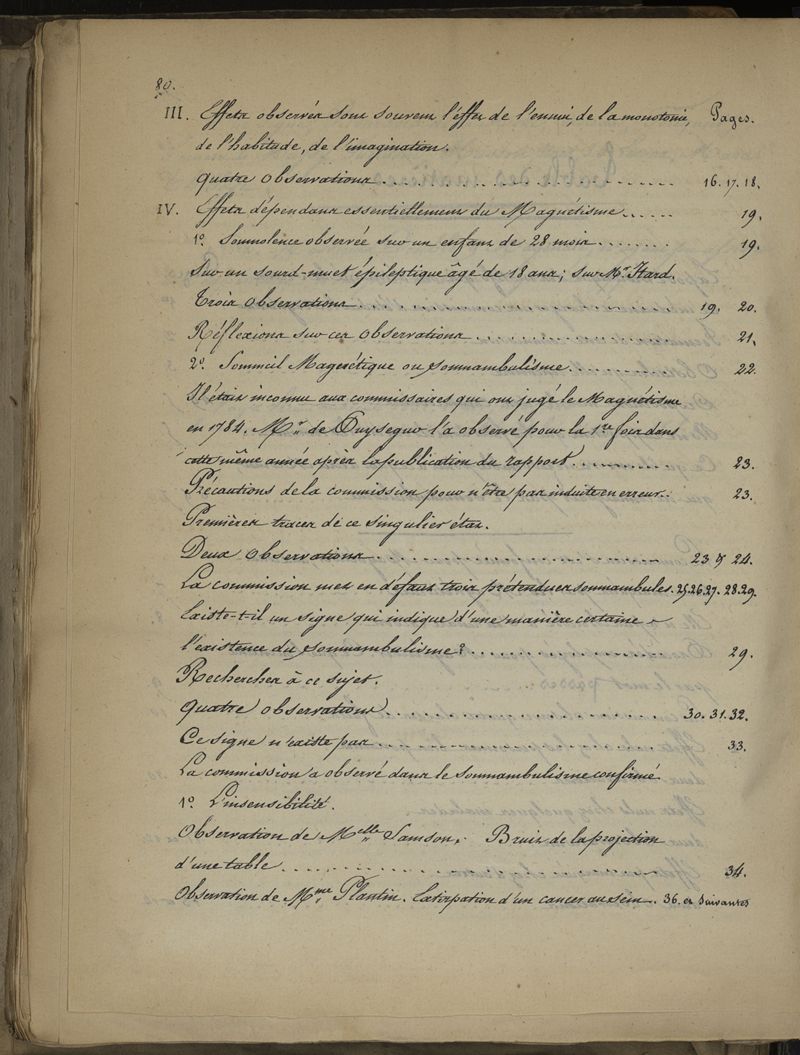 80.
III. Effets observés sont souvent l'effet de l'ennui, de la monotonie, Pages.
de l'habitude, de l'imagination.
Quatre Observations . . . . . . . . . . 16. 17. 18.
IV. Effets dépendans essentiellement du Magnétisme . . . . . . 19.
1º. Somnolence observée sur un enfant de 28 mois . . . . . . . . 19.
Sur un sourd-muet épileptique âgé de 18 ans; sur Mr. Itard.
Trois Observations . . . . . . . . . . 19. 20.
Réflexions sur ces Observations . . . . . . . . . . 21.
2º. Sommeil Magnétique ou somnambulisme . . . . . . . . . . 22.
Il était inconnu aux commissaires qui ont jugé le Magnétisme
en 1784. Mr. de Puysegur l'a observé pour la 1re fois dans
cette même année après la publication du rapport . . . . . . . . . . 23.
Précautions de la commission pour n'être pas induite en erreur . . 23.
Premières traces de ce singulier état.
Deux Observations . . . . . . . . . . 23 & 24.
La commission met en défaut trois prétendues somnambules. 25.26.27. 28.29.
Existe-t-il un signe qui indique d'une manière certaine
l'existence du somnambulisme? . . . . . . . . . . 29.
Recherches à ce sujet.
Quatre observations . . . . . . . . . . 30. 31. 32.
Ce signe n'existe pas . . . . . . . . . . 33.
La commission a observé dans le somnambulisme confirmé
1º. L'insensibilité.
Observation de Melle Samson. Bruit de la projection
d'une table . . . . . . . . . . 34.
Observation de Mme Plantin. Extirpation d'un cancer au sein . . 36. et suivantes